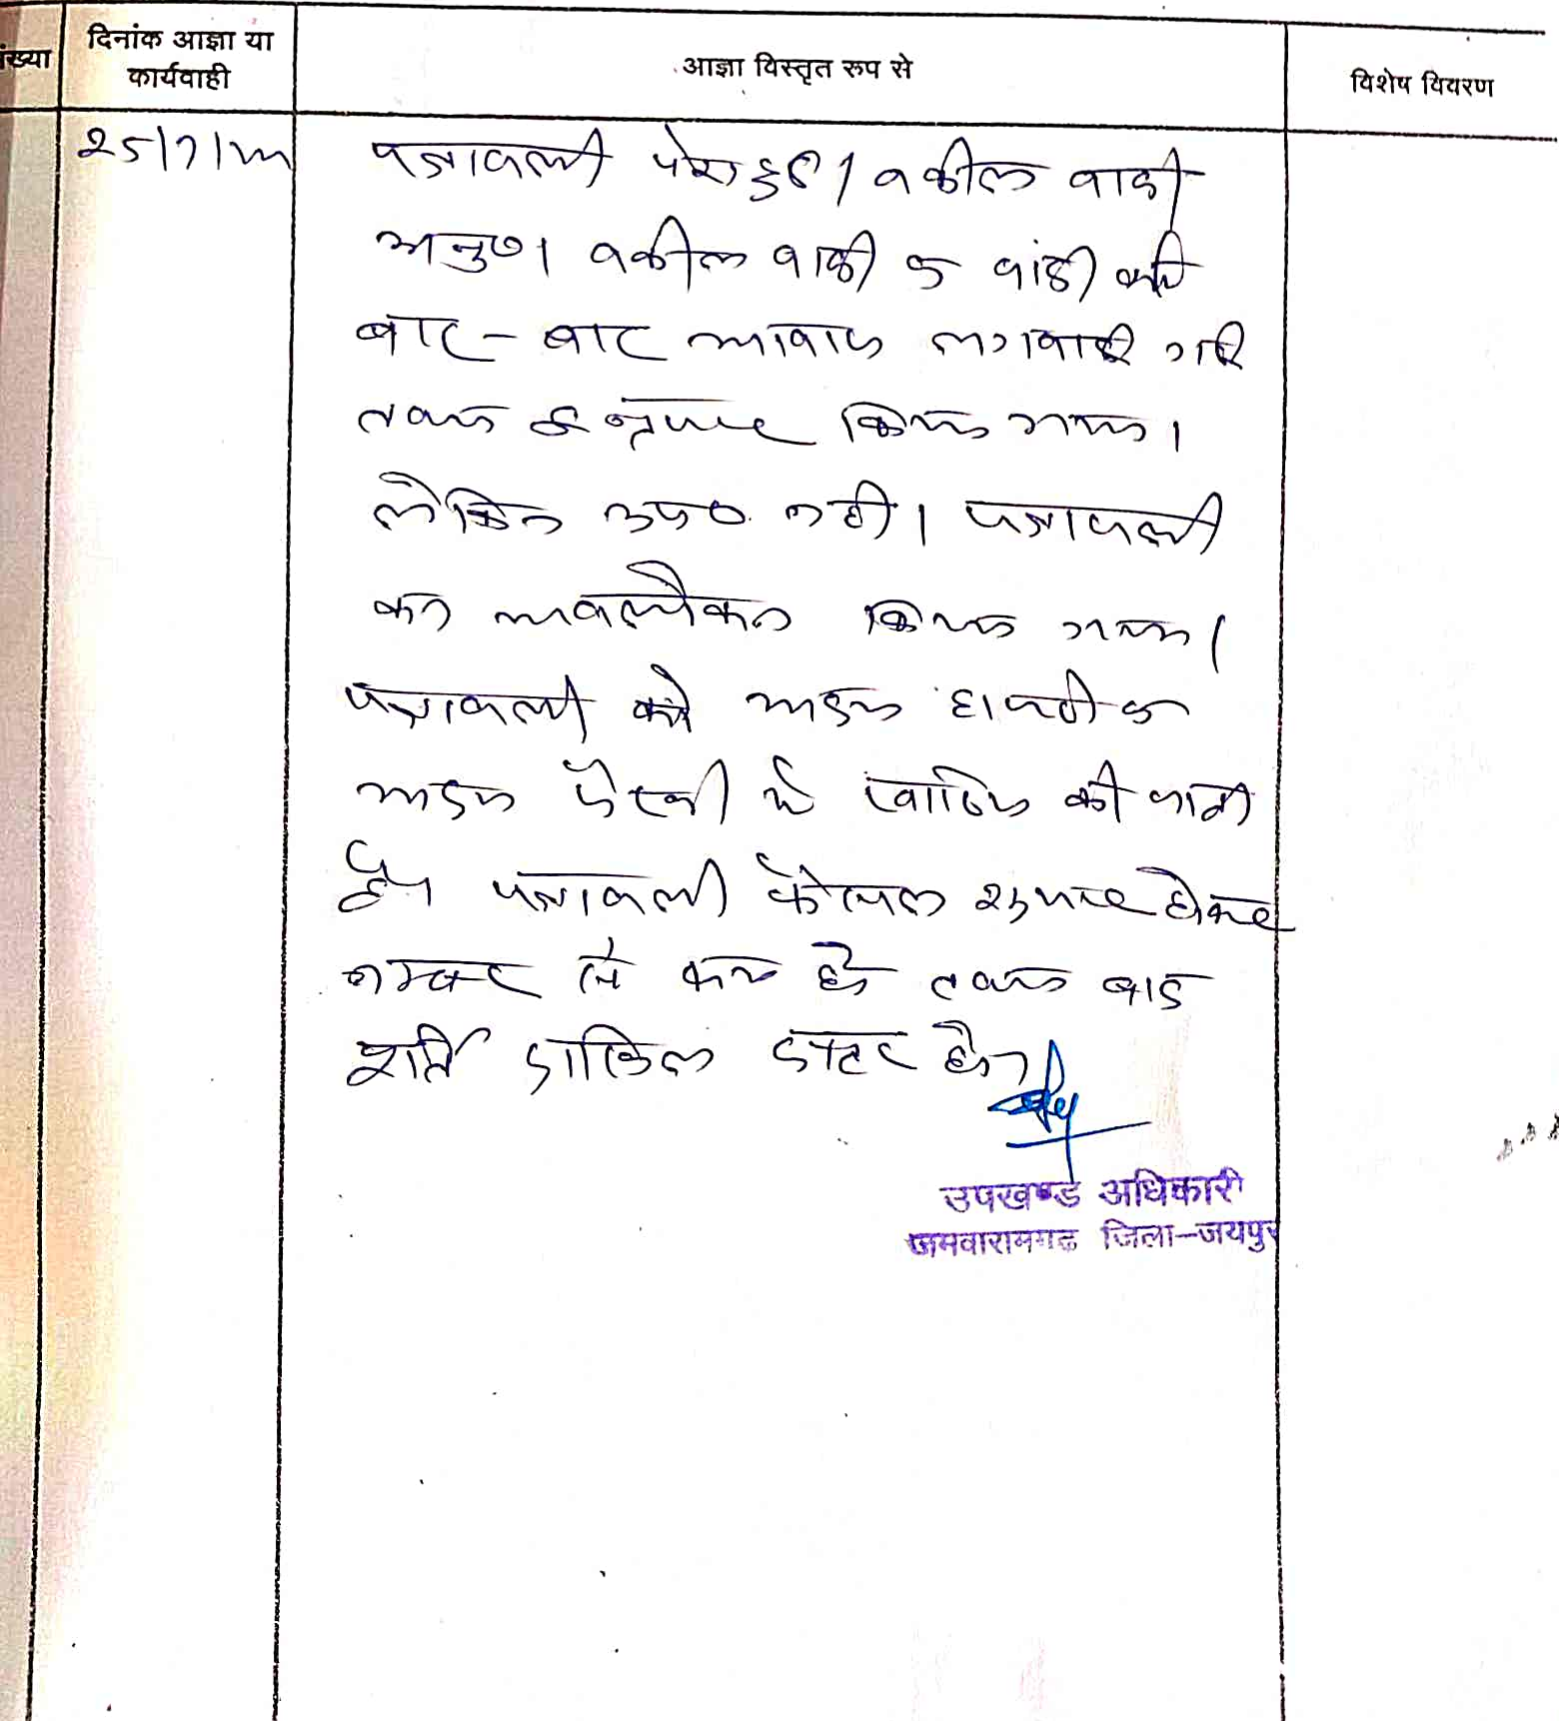 ंख्या
दिनांक आज्ञा या
कार्यवाही
आज्ञा विस्तृत रूप से
विशेष विवरण
25/7/
पत्रावली पेश हुई। वकील वादी
अनु०। वकील वादी व वादी को
बार-बार आवाज लगवाई गई
तथा इन्तजार किया गया।
लेकिन उप० नहीं। पत्रावली
का अवलोकन किया गया।
पत्रावली को अदम हाजरी व
अदम पैरवी में खारिज की जाती
है। पत्रावली फैसल शुमार होकर
नम्बर से कम हो तथा बाद
पूर्ति दाखिल दफ्तर हो।
उपखण्ड अधिकारी
जमवारामगढ जिला-जयपुर